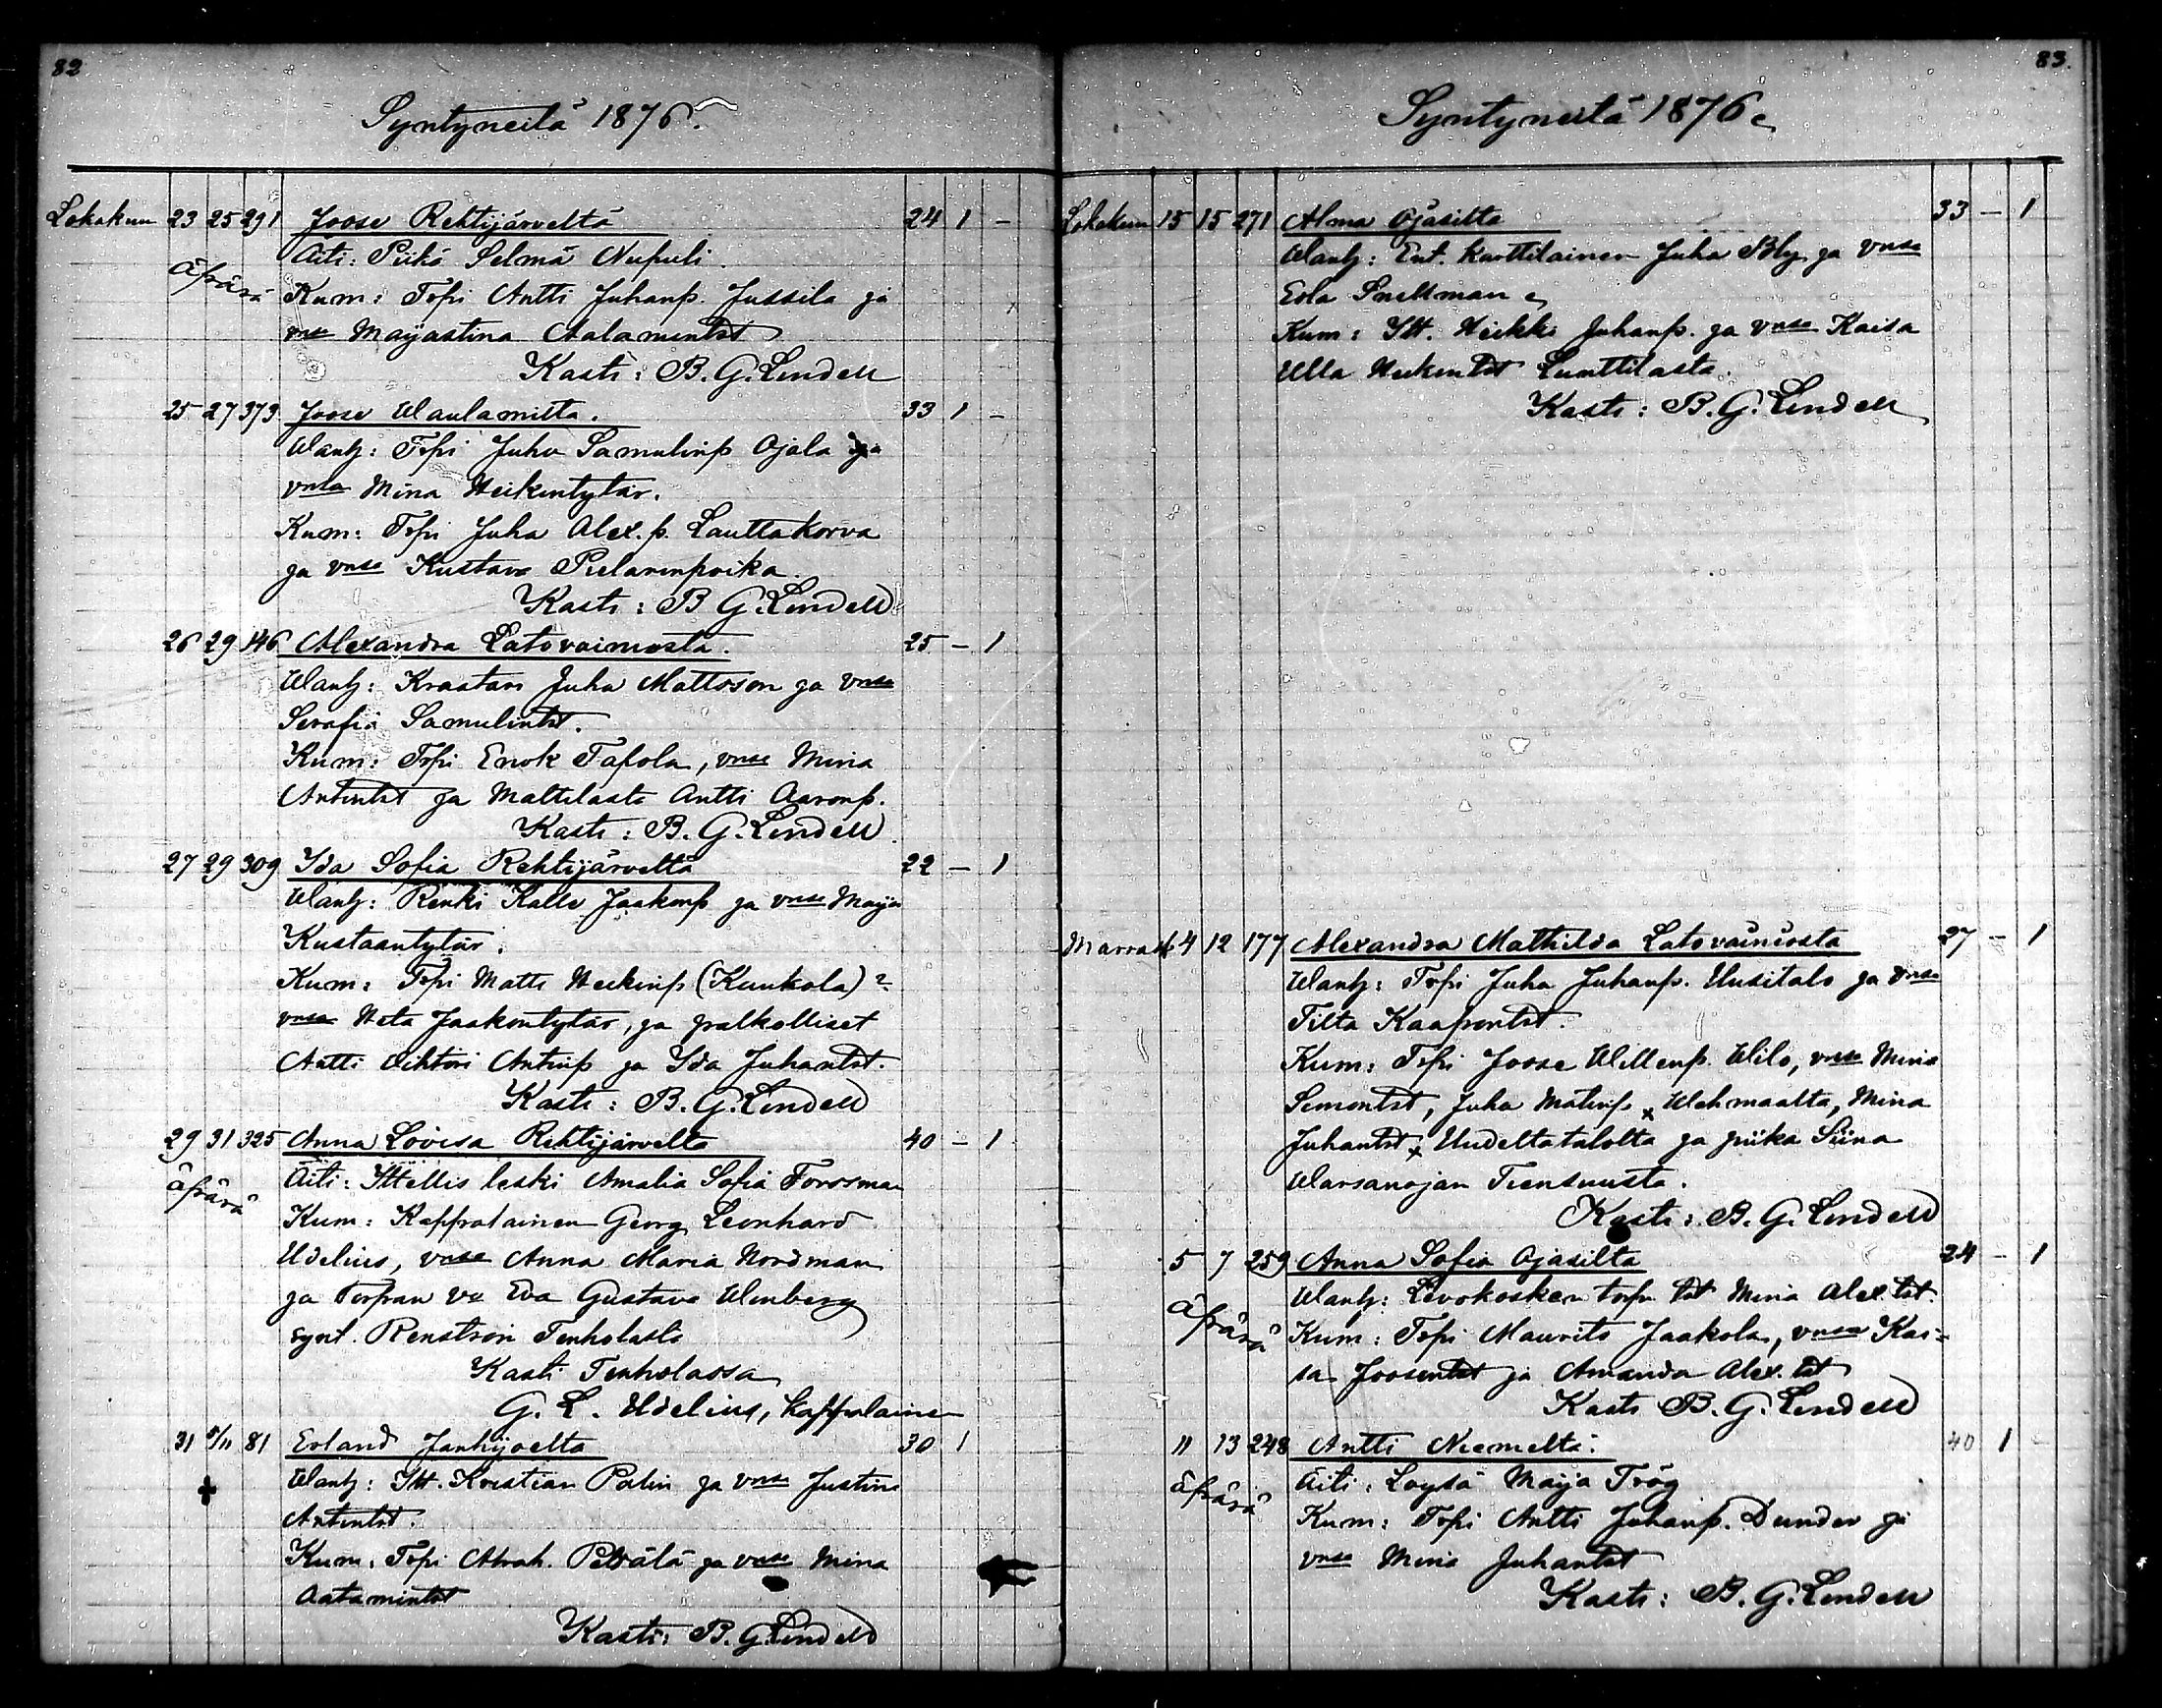 82
Syntyneitä 1876.
Lokakuu 23 25 291 Joose Rehtijärveltä 24 1 -
Äiti: Piika Selmä Nupuli.
äpärä Kum: Topi Antti Juhanp. Jussila ja
vmsa Maijastina Aatamintst
Kasti: B. G. Lindell
25 27 373 Joose Waulamilta. 33 1 -
Wanh: Topi Juha Samulinp Ojala ja
vmsa Mina Heikintytär.
Kum: Topi Juha Alex. p. Lauttakorva
ja vmsa Kustava
Kasti: B G. Lindell
26 29 146 Alexandra Latovainiosta. 25 - 1
Wanh: Kraatari Juha Mattsson ja vmsa
Serafia Samulintst.
Kum: Topi Enok Tapola, vmsa Mina
Antintst ja Mattilasta Antti Aaronp.
Kasti: B. G. Lindell
27 29 309 Ida Sofia Rehtijärveltä 22 - 1
Wanh: Renki Kalle Jaakonp ja vmsa Maija
Kustaantytär.
Kum: Topi Matti Heikinp (Kunkola)?
vmsa Heta Jaakontytär, ja palkolliset
Antti Vihtori Antinp ja Ida Juhantst.
Kasti: B. G. Lindell
29 31 325 Anna Lovisa Rehtijärveltä 40 - 1
äpärä Äiti: Ittellis leski Amalia Sofia Forsman
Kum: Kappalainen Georg Leonhard
Udelius, vmsa Anna Maria Nordman
ja Torpan va Eva Gustava Wenberg
synt. Renström Tenholasta
Kasti Tenholassa
G. L. Udelius, kappalainen
31 5/11 81 Erland Janhijoelta 30 1
Wanh: Itt. Kristian Palin ja vmsa Justina
Antintst.
Kum: Topi Abrah. Peträlä ja vmsa Mina
Aatamintst
Kasti: B. G. Lindell
83.
Syntyneitä 1876.
Lokakuu 15 15 271 Alma Ojasilta 33 - 1
Wanh: Ent. Karttilainen Juha Bly ja vmsa
Eola Snellman
Kum: Itt. Heikki Juhanp. ja vmsa Kaisa
Ulla Heikintst Lunttilasta.
Kasti: B. G. Lindell
Marrask 4 12 177 Alexandra Mathilda Latovainiosta 27 - 1
Wanh: Topi Juha Juhanp. Uusitalo ja vmsa
Tilta Kaapontst.
Kum: Topi Joose Willenp. Wilo, vmsa Mina
Simontst, Juha Matinp x Wehmaalta, Mina
Juhantst x Uudeltatalolta ja piika Siina
Warsanojan Tiensuusta.
Kasti: B. G. Lindell
5 7 259 Anna Sofia Ojasilta 24 - 1
Wanh: Levokosken torp. tst Mina Alex. tst.
äpärä Kum: Topi Maurits Jaakola, vmsa Kai-
sa Joosentst ja Amanda Alex. tst
Kasti B. G. Lindell
11 13 248 Antti Niemeltä. 40 1 -
äpärä Äiti: Loysä Maija Trög
Kum: Topi Antti Juhanp. Dunder ja
vmsa Mina Juhantst
Kasti: B. G. Lindell